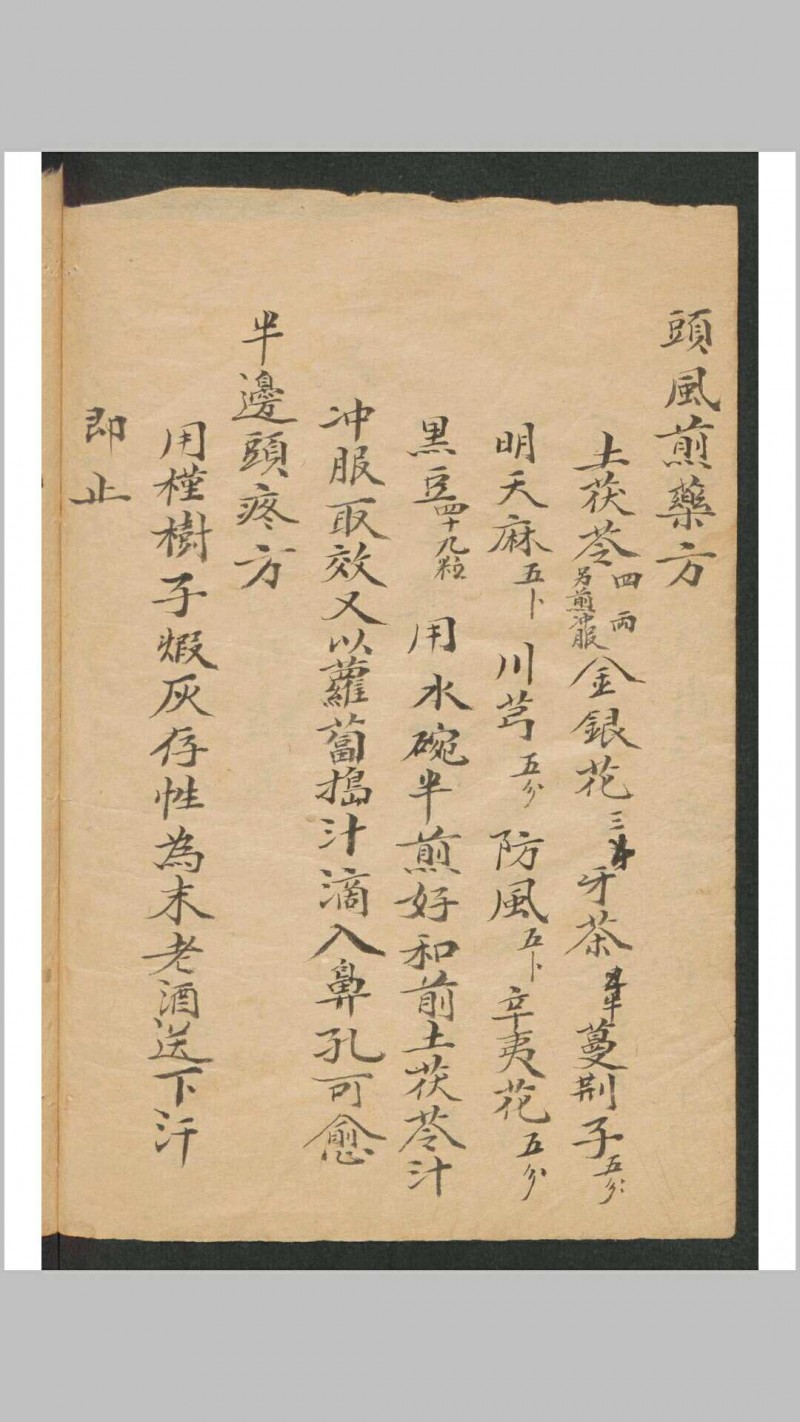 頭風煎藥方
土茯苓四兩另煎冲服金銀花三 牙茶 蔓荆子五分
明天麻五卜川芎五分防風五卜辛夷花五分
黒豆四十九粒用水碗半煎好和前土茯苓汁
冲服取效又以蘿蔔搗汁滴入鼻孔可愈
半邊頭疼方
用槿樹子煆灰存性為末老酒送下汗
即止